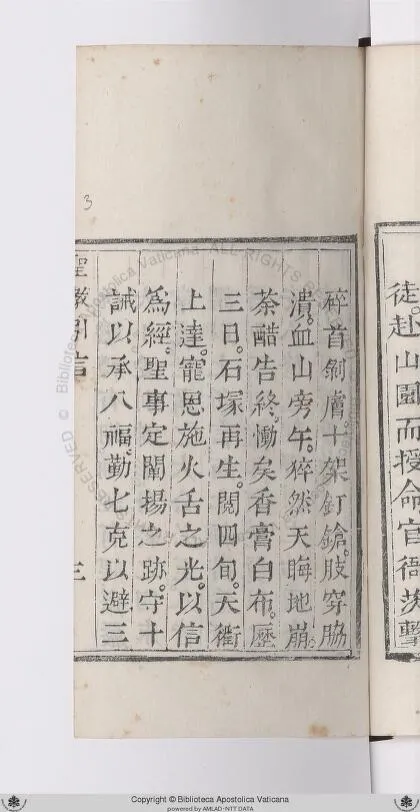 徒赴山園而授命官衙
擊
碎首剝膚十架釘鎗肢穿脇
潰血山旁午猝然天晦地崩
荼醋告終慟矣香膏白布歷
三日石塚再生閱四旬天衢
上達寵恩施火舌之光以信
為經聖事定闡揚之跡守十
誡以承八福勤七克以避三
聖教引言
三
3
Copyright © Biblioteca Apostolica Vaticana
powered by AMLAD-NTT DATA